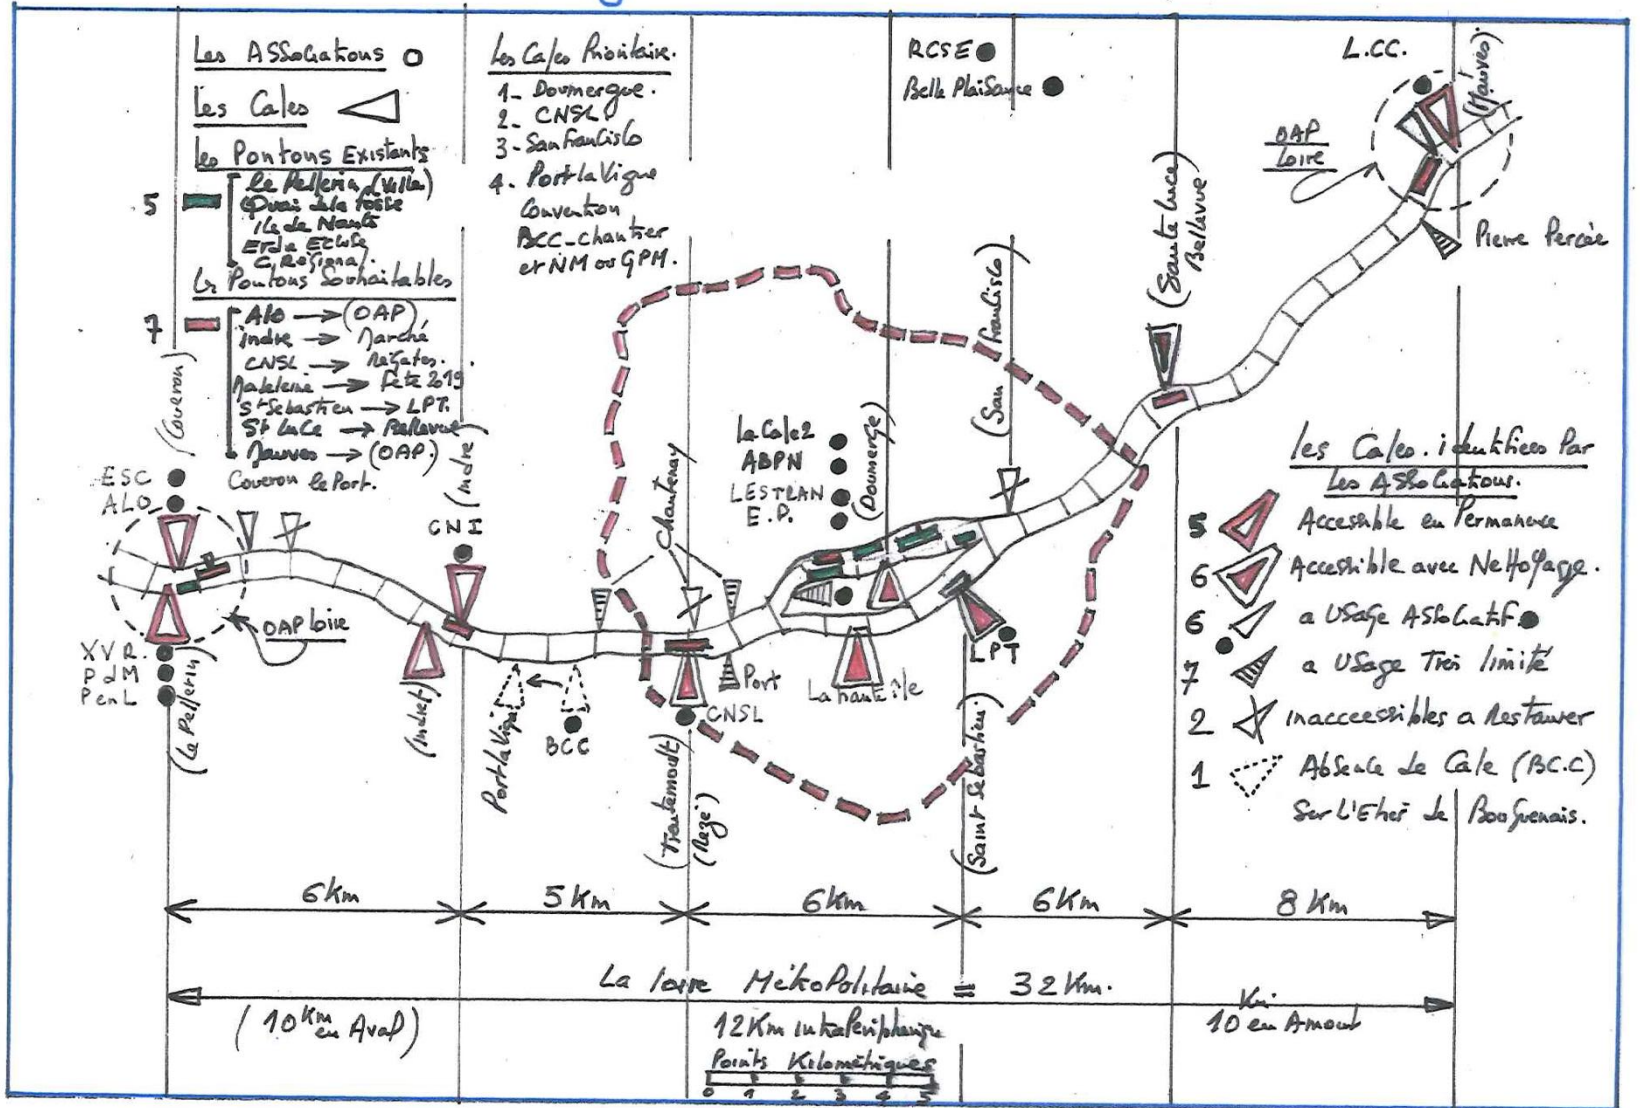 Les ASSociations
Les Cales
Les Pontons Existants
5
Le Pellerin (Ville)
Quai de la Fosse
Ile de Nantes
Erdre Ecluse
C. Régional.
Les Pontons Souhaitables
7
Alo → (OAP)
indre → Marché
CNSL → Régates.
Madeleine → Fête 2019
St Sebastien → LPT.
St Luce → Bellevue
Mauves → (OAP.)
Coueron le Port.
Les Cales Prioritaire.
1_ Doumergue.
2_ CNSL
3-San Francisco
4. Port la Vigue
Convention
BCC_chantier
et NM ou GPM.
RCSE
Belle Plaisance
L.CC.
(Mauves)
OAP
Loire
Pierre Percée
(Sainte Luce)
Bellevue
(San Francisco)
(Doumerge)
La Cale 2
ABPN
LESTRAN
E.P.
Chantenay
(Coueron)
ESC
ALO
(indre)
CNI
OAP Loire
XVR.
PdM
PenL
(Le Pellerin)
(indret)
Port la Vigue
BCC
Port
CNSL
(Trentemoult)
(Rezé)
La haute île
LPT
(Saint Sebastien)
Les Cales. identifiées Par
Les ASSociations.
5 Accessible en Permanence
6 Accessible avec Nettoyage.
6 a Usage ASSociatif
7 a Usage Très limité
2 inaccessibles a Restaurer
1 Absence de Cale (BC.C)
Sur L'Etier de Bouguenais.
6 Km
5 Km
6 Km
6 Km
8 Km
La Loire MétroPolitaine = 32 Km.
(10 Km
en Aval)
12 Km intraPeriphérique
Km.
10 en Amont
Points Kilométriques
0 1 2 3 4 5